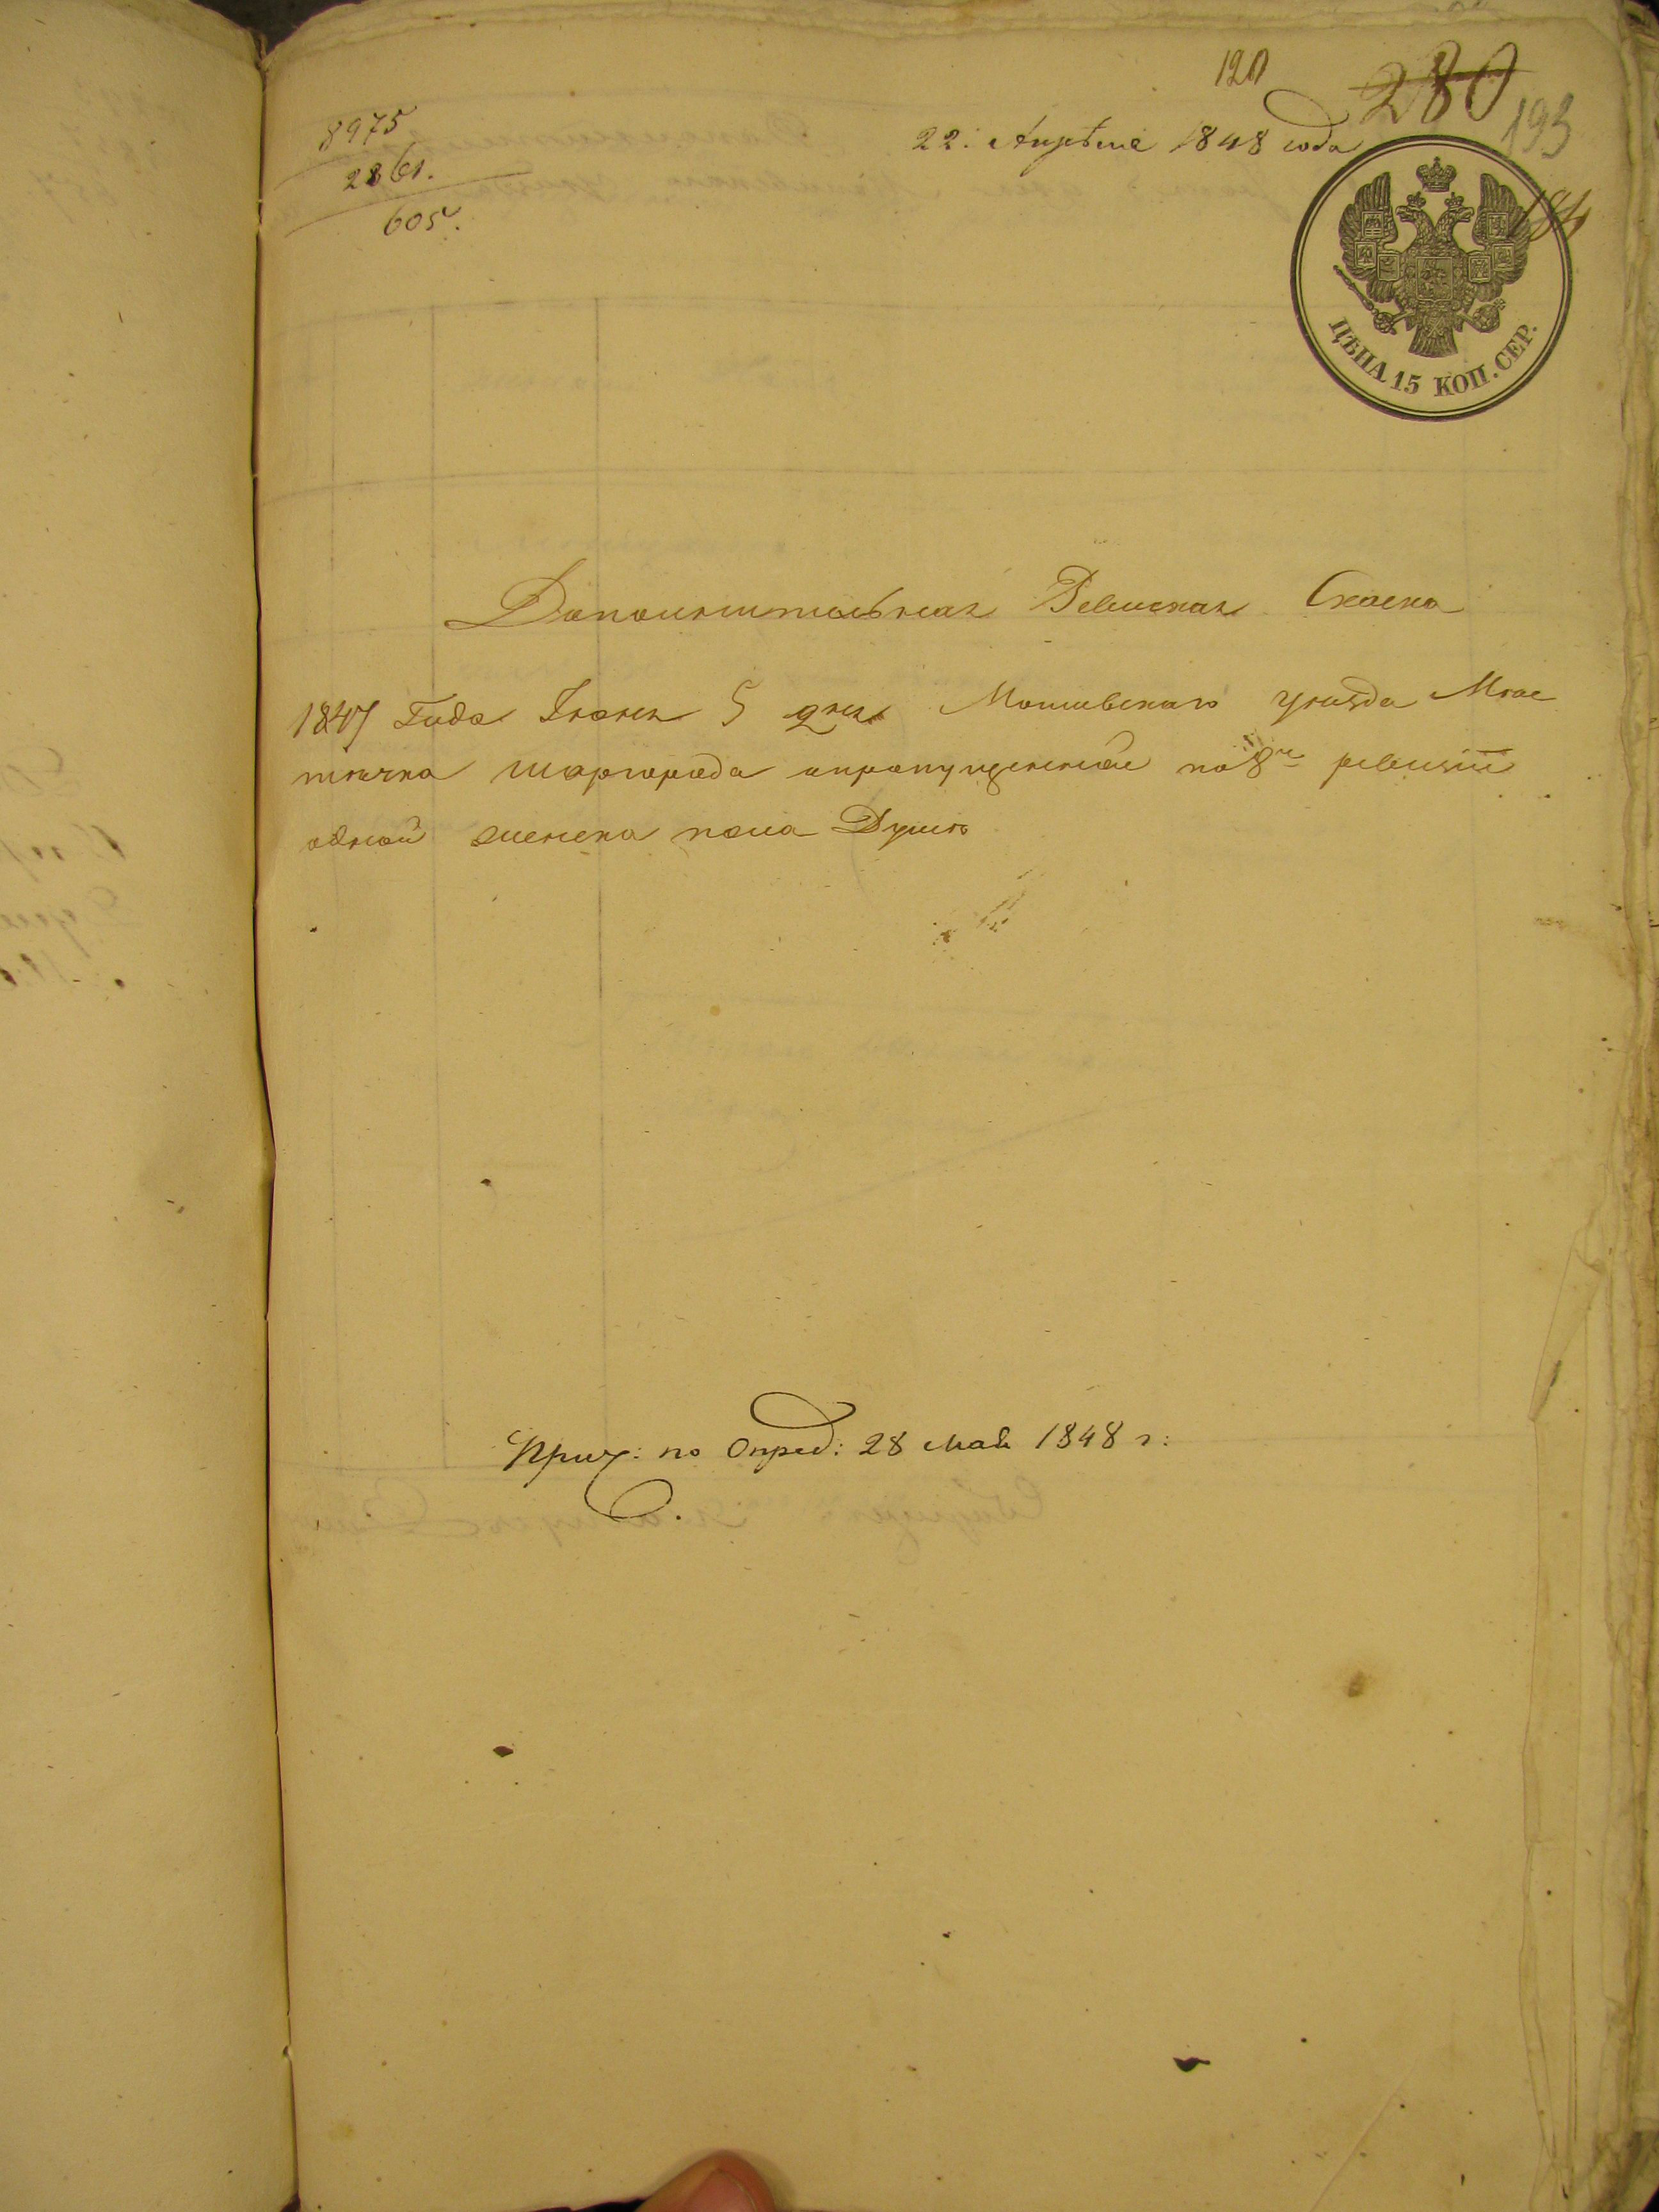 120
280
193
8975
2861.
605.
22. Апрѣля 1848 года
ЦѢНА 15 КОП. СЕР.
Дополнительная Ревиская Скаска
1847 Года Іюня 5 дня Могилевскаго уѣзда Мѣс
тѣчка Шаргорода опропущенной по 8й ревизіи
одной женска пола Душѣ
Прич: по Опред: 28 Мая 1848 г: